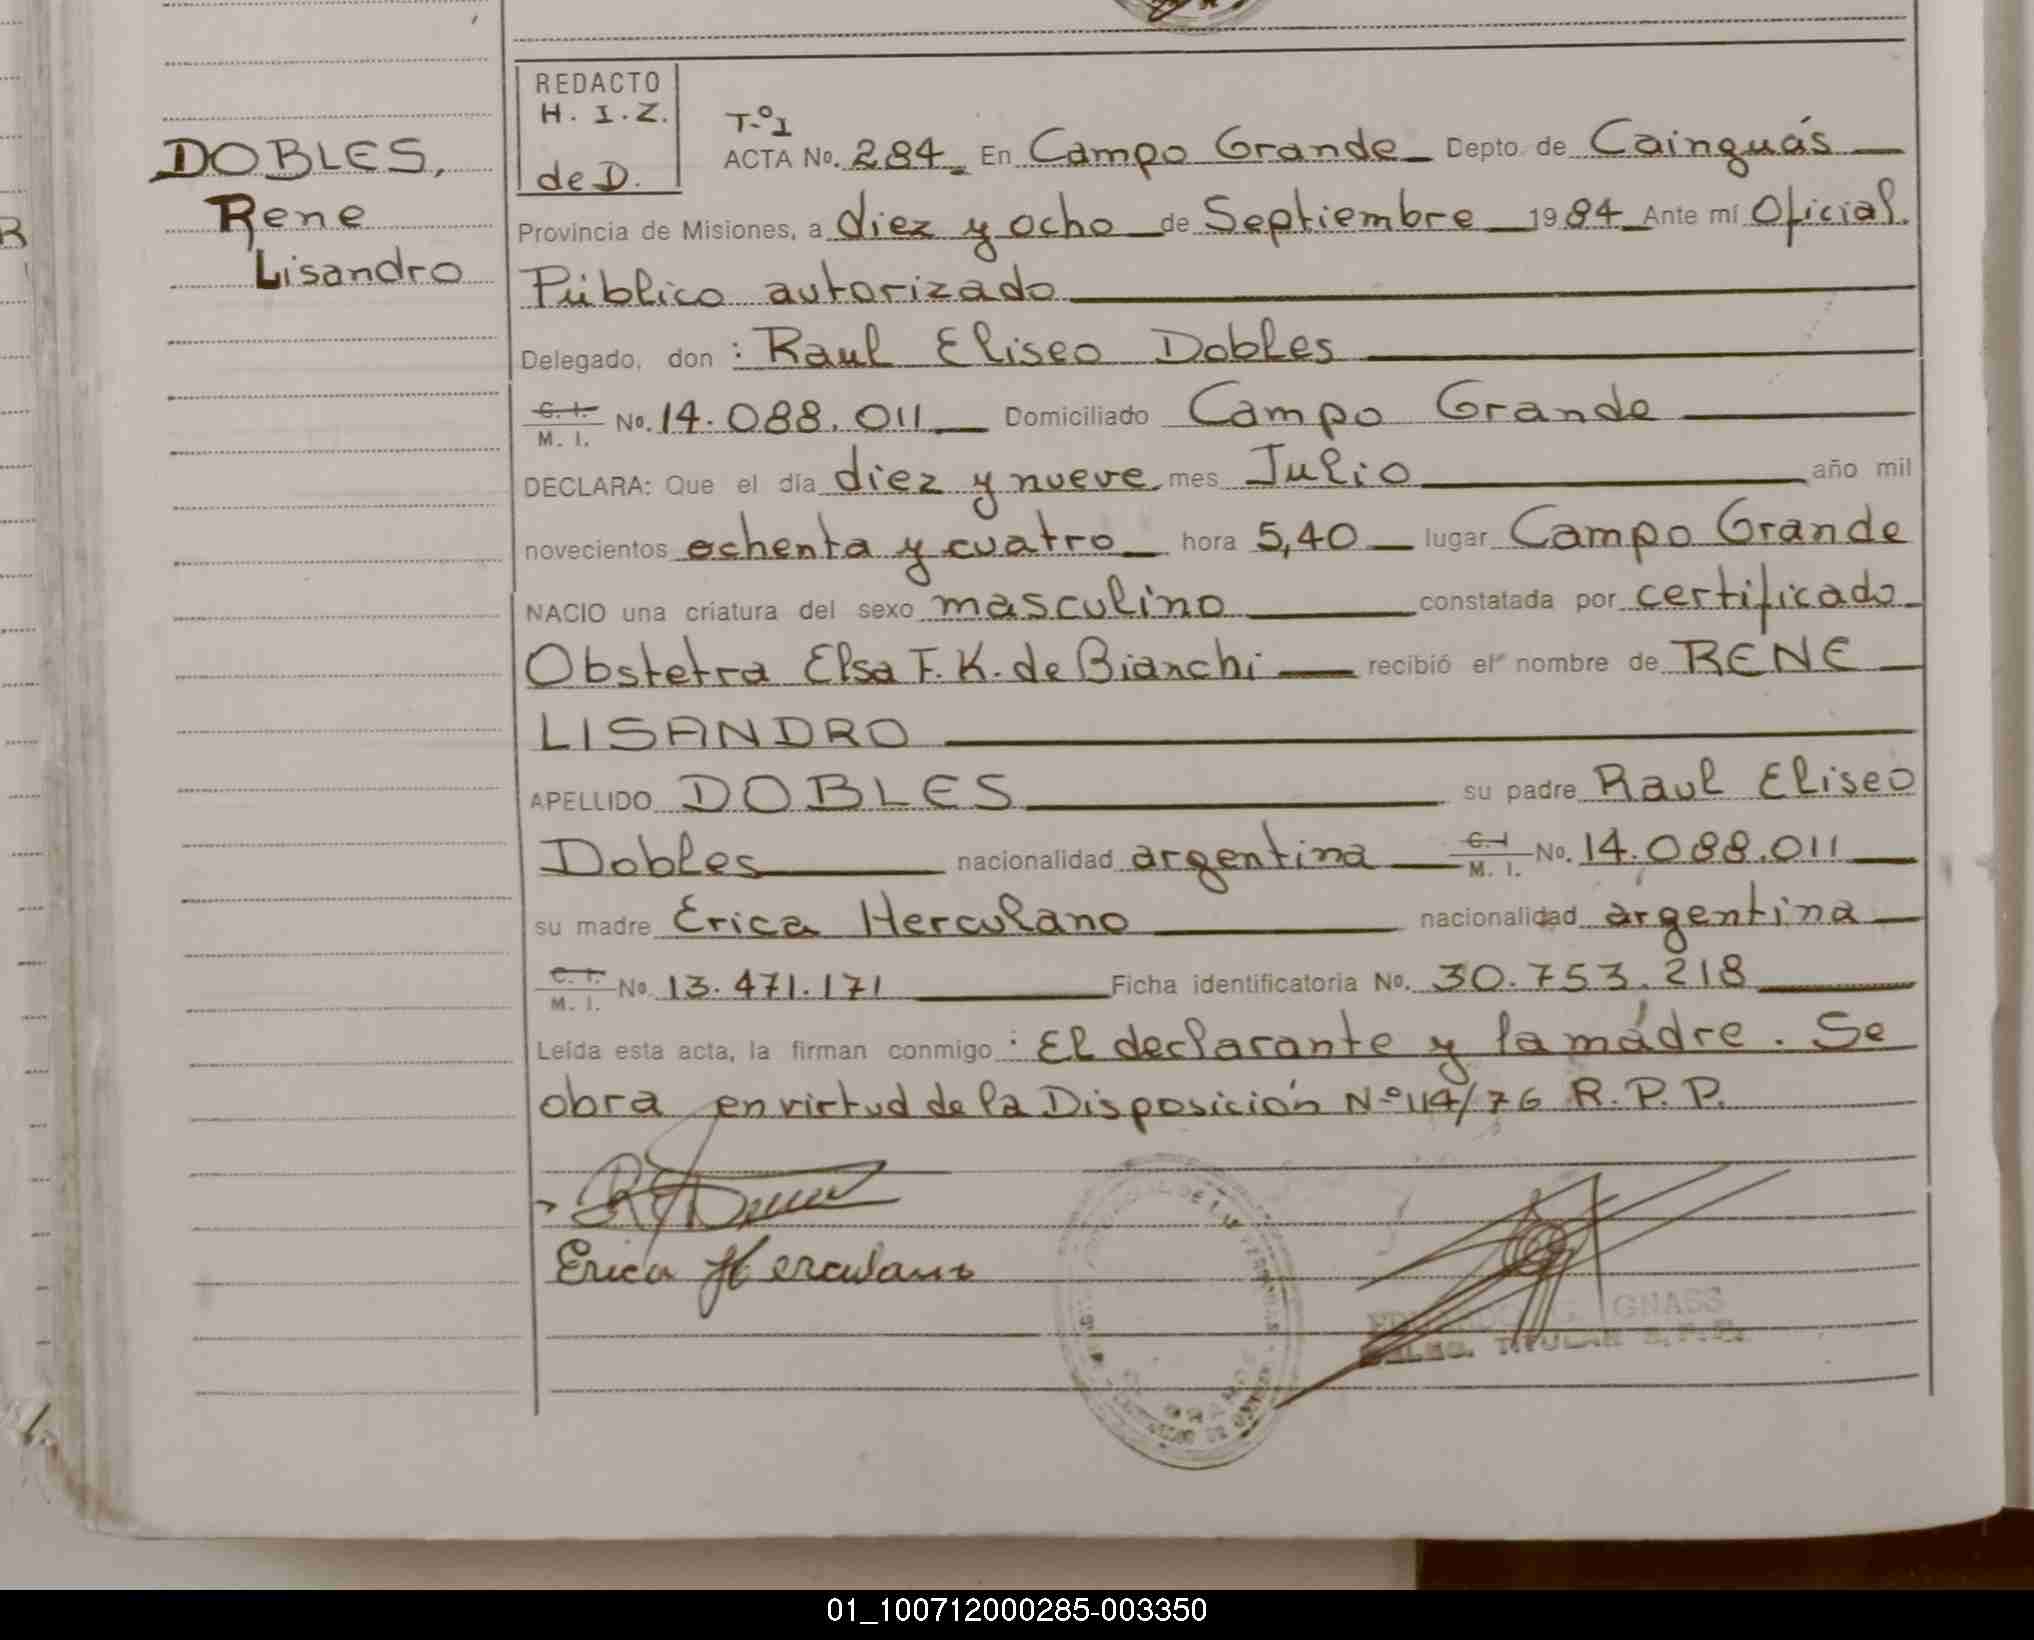 DOBLES,
Rene
Lisandro
REDACTO
H. I. Z.
de D.
T.º I
ACTA No. 284 En Campo Grande Depto. de Cainguás
Provincia de Misiones, a diez y ocho de Septiembre 1984 Ante mí Oficial
Público autorizado
Delegado, don : Raul Eliseo Dobles
C. I.
M. I. No. 14.088.011 Domiciliado Campo Grande
DECLARA: Que el día diez y nueve mes Julio año mil
novecientos ochenta y cuatro hora 5,40 lugar Campo Grande
NACIO una criatura del sexo masculino constatada por certificado
Obstetra Elsa F. K. de Bianchi recibió el nombre de RENE
LISANDRO
APELLIDO DOBLES su padre Raul Eliseo
Dobles nacionalidad argentina C. I. M. I. No. 14.088.011
su madre Erica Herculano nacionalidad argentina
C. I.
M. I. No 13.471.171 Ficha identificatoria No. 30.753.218
Leída esta acta, la firman conmigo : El declarante y la mádre. Se
obra en virtud de la Disposición Nº 114/76 R. P. P.
Erica Herculano
GNASS
TITULAR
01_100712000285-003350